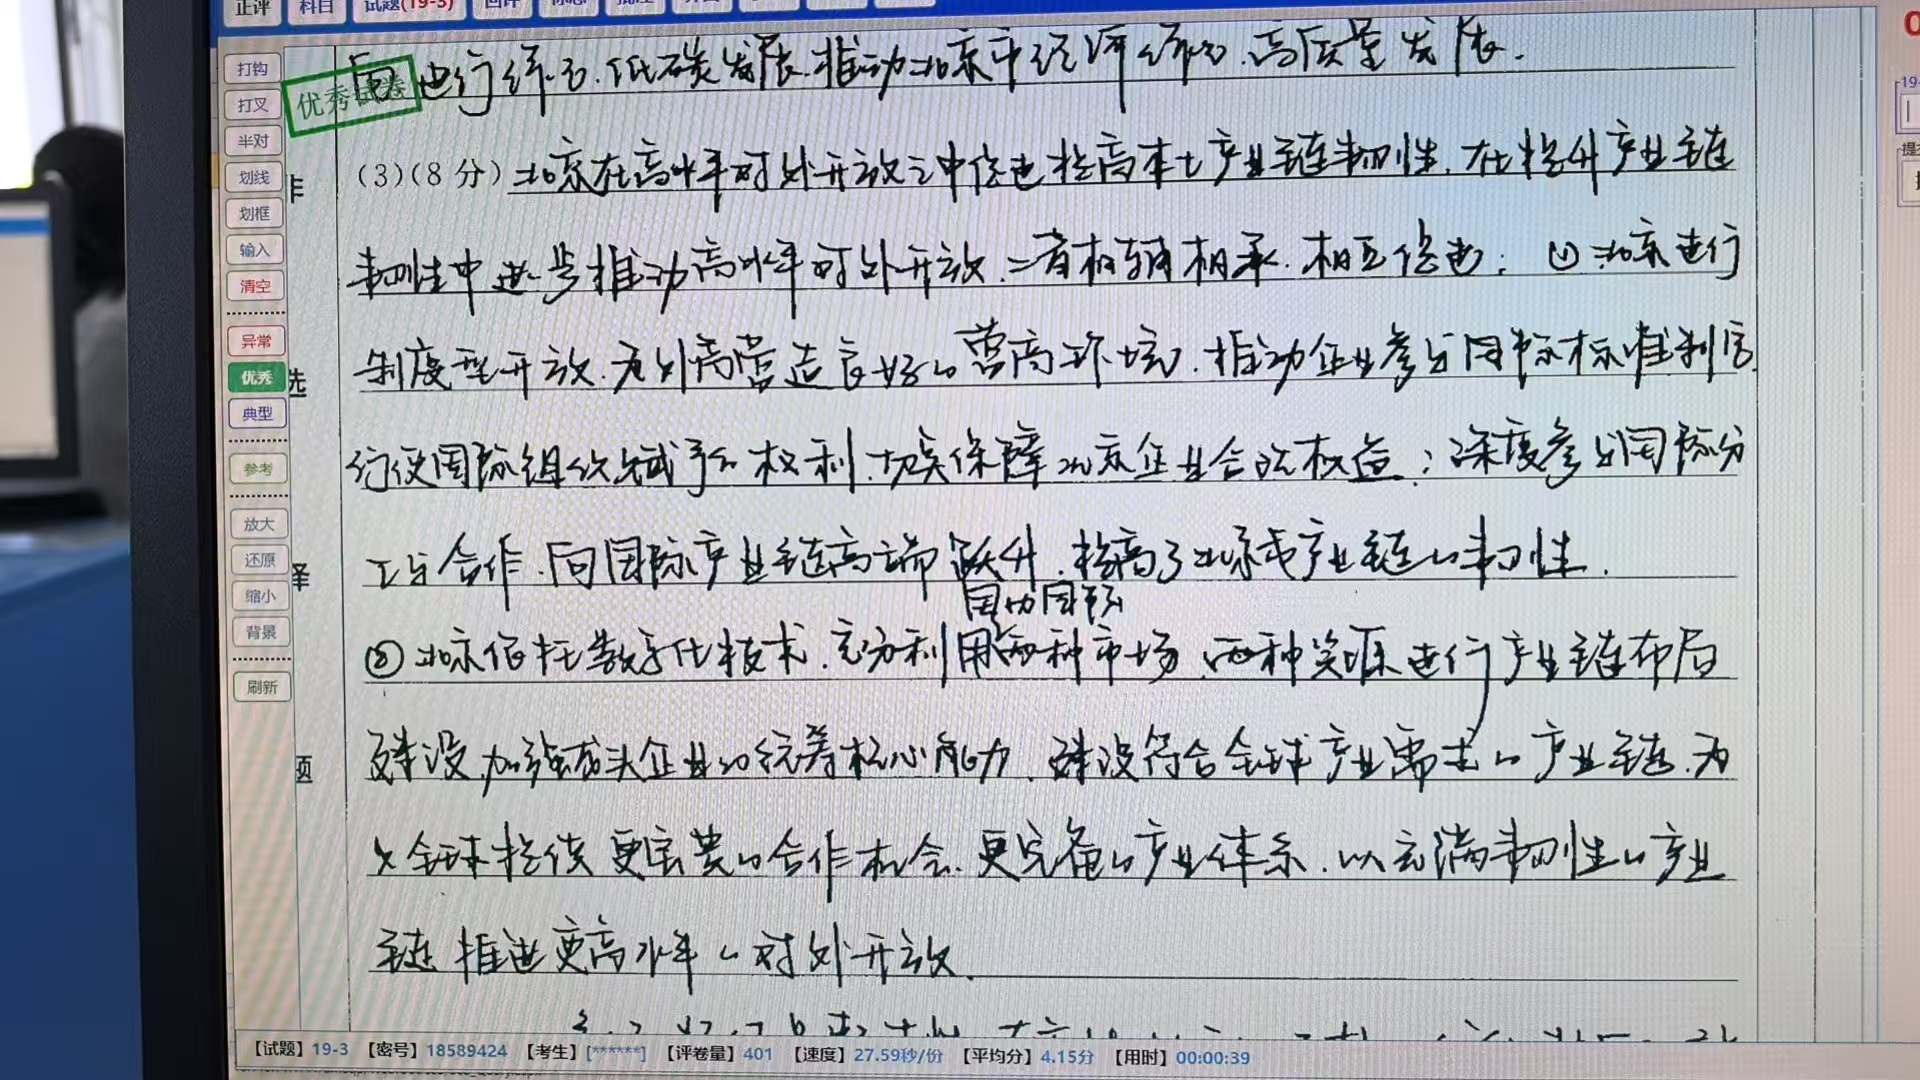 正评 科目 试题(19-3) 回评
打钩
打叉
半对
划线
划框
输入
清空
异常
优秀
典型
参考
放大
还原
缩小
背景
刷新
非
选
择
题
优秀试卷
进行绿色、低碳发展,推动北京市经济绿色、高质量发展.
(3)(8分)北京在高水平对外开放之中促进提高本土产业链韧性,在提升产业链
韧性中进一步推动高水平对外开放,二者相辅相承,相互促进:①北京进行
制度型开放,为外商营造良好的营商环境,推动企业参与国际标准制定,
行使国际组织赋予的权利,切实保障北京企业合法权益;深度参与国际分
工与合作,向国际产业链高端跃升,提高了北京产业链的韧性.
国内国际
②北京依托数字化技术,充分利用两种市场,两种资源进行产业链布局
建设,加强龙头企业的统筹核心能力,建设符合全球产业需求的产业链,为
全球提供更宝贵的合作机会,更完备的产业体系,以充满韧性的产业
链推进更高水平的对外开放.
【试题】19-3 【密号】18589424 【考生】[******] 【评卷量】401 【速度】27.59秒/份 【平均分】4.15分 【用时】00:00:39